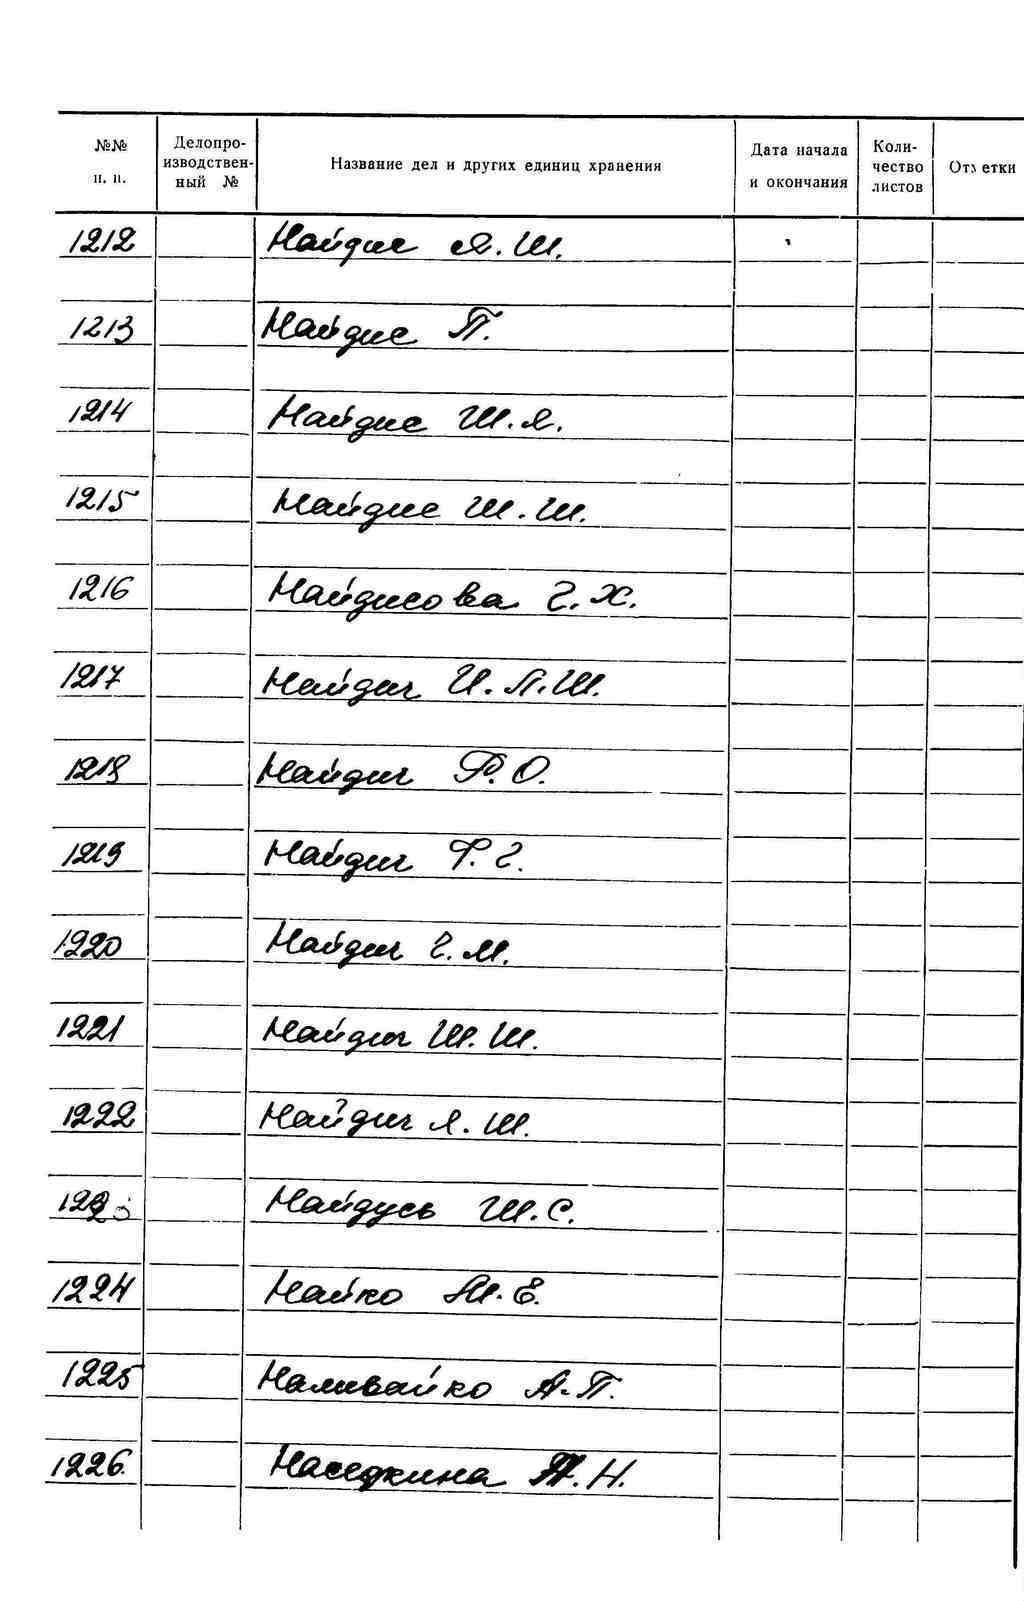 №№ п. п. Делопроизводственный № Название дел и других единиц хранения Дата начала и окончания Количество листов Отметки
1212 Найдис Я. Ш.
1213 Найдис П.
1214 Найдис Ш. Я.
1215 Найдис Ш. Ш.
1216 Найдисова Г. Х.
1217 Найдич И. Л. Ш.
1218 Найдич Р. О.
1219 Найдич Ф. Г.
1220 Найдич Г. М.
1221 Найдич Ш. Ш.
1222 Найдич Я. Ш.
1223 Найдусь Ш. С.
1224 Найко М. Е.
1225 Наливайко А. П.
1226. Наседкина Н.